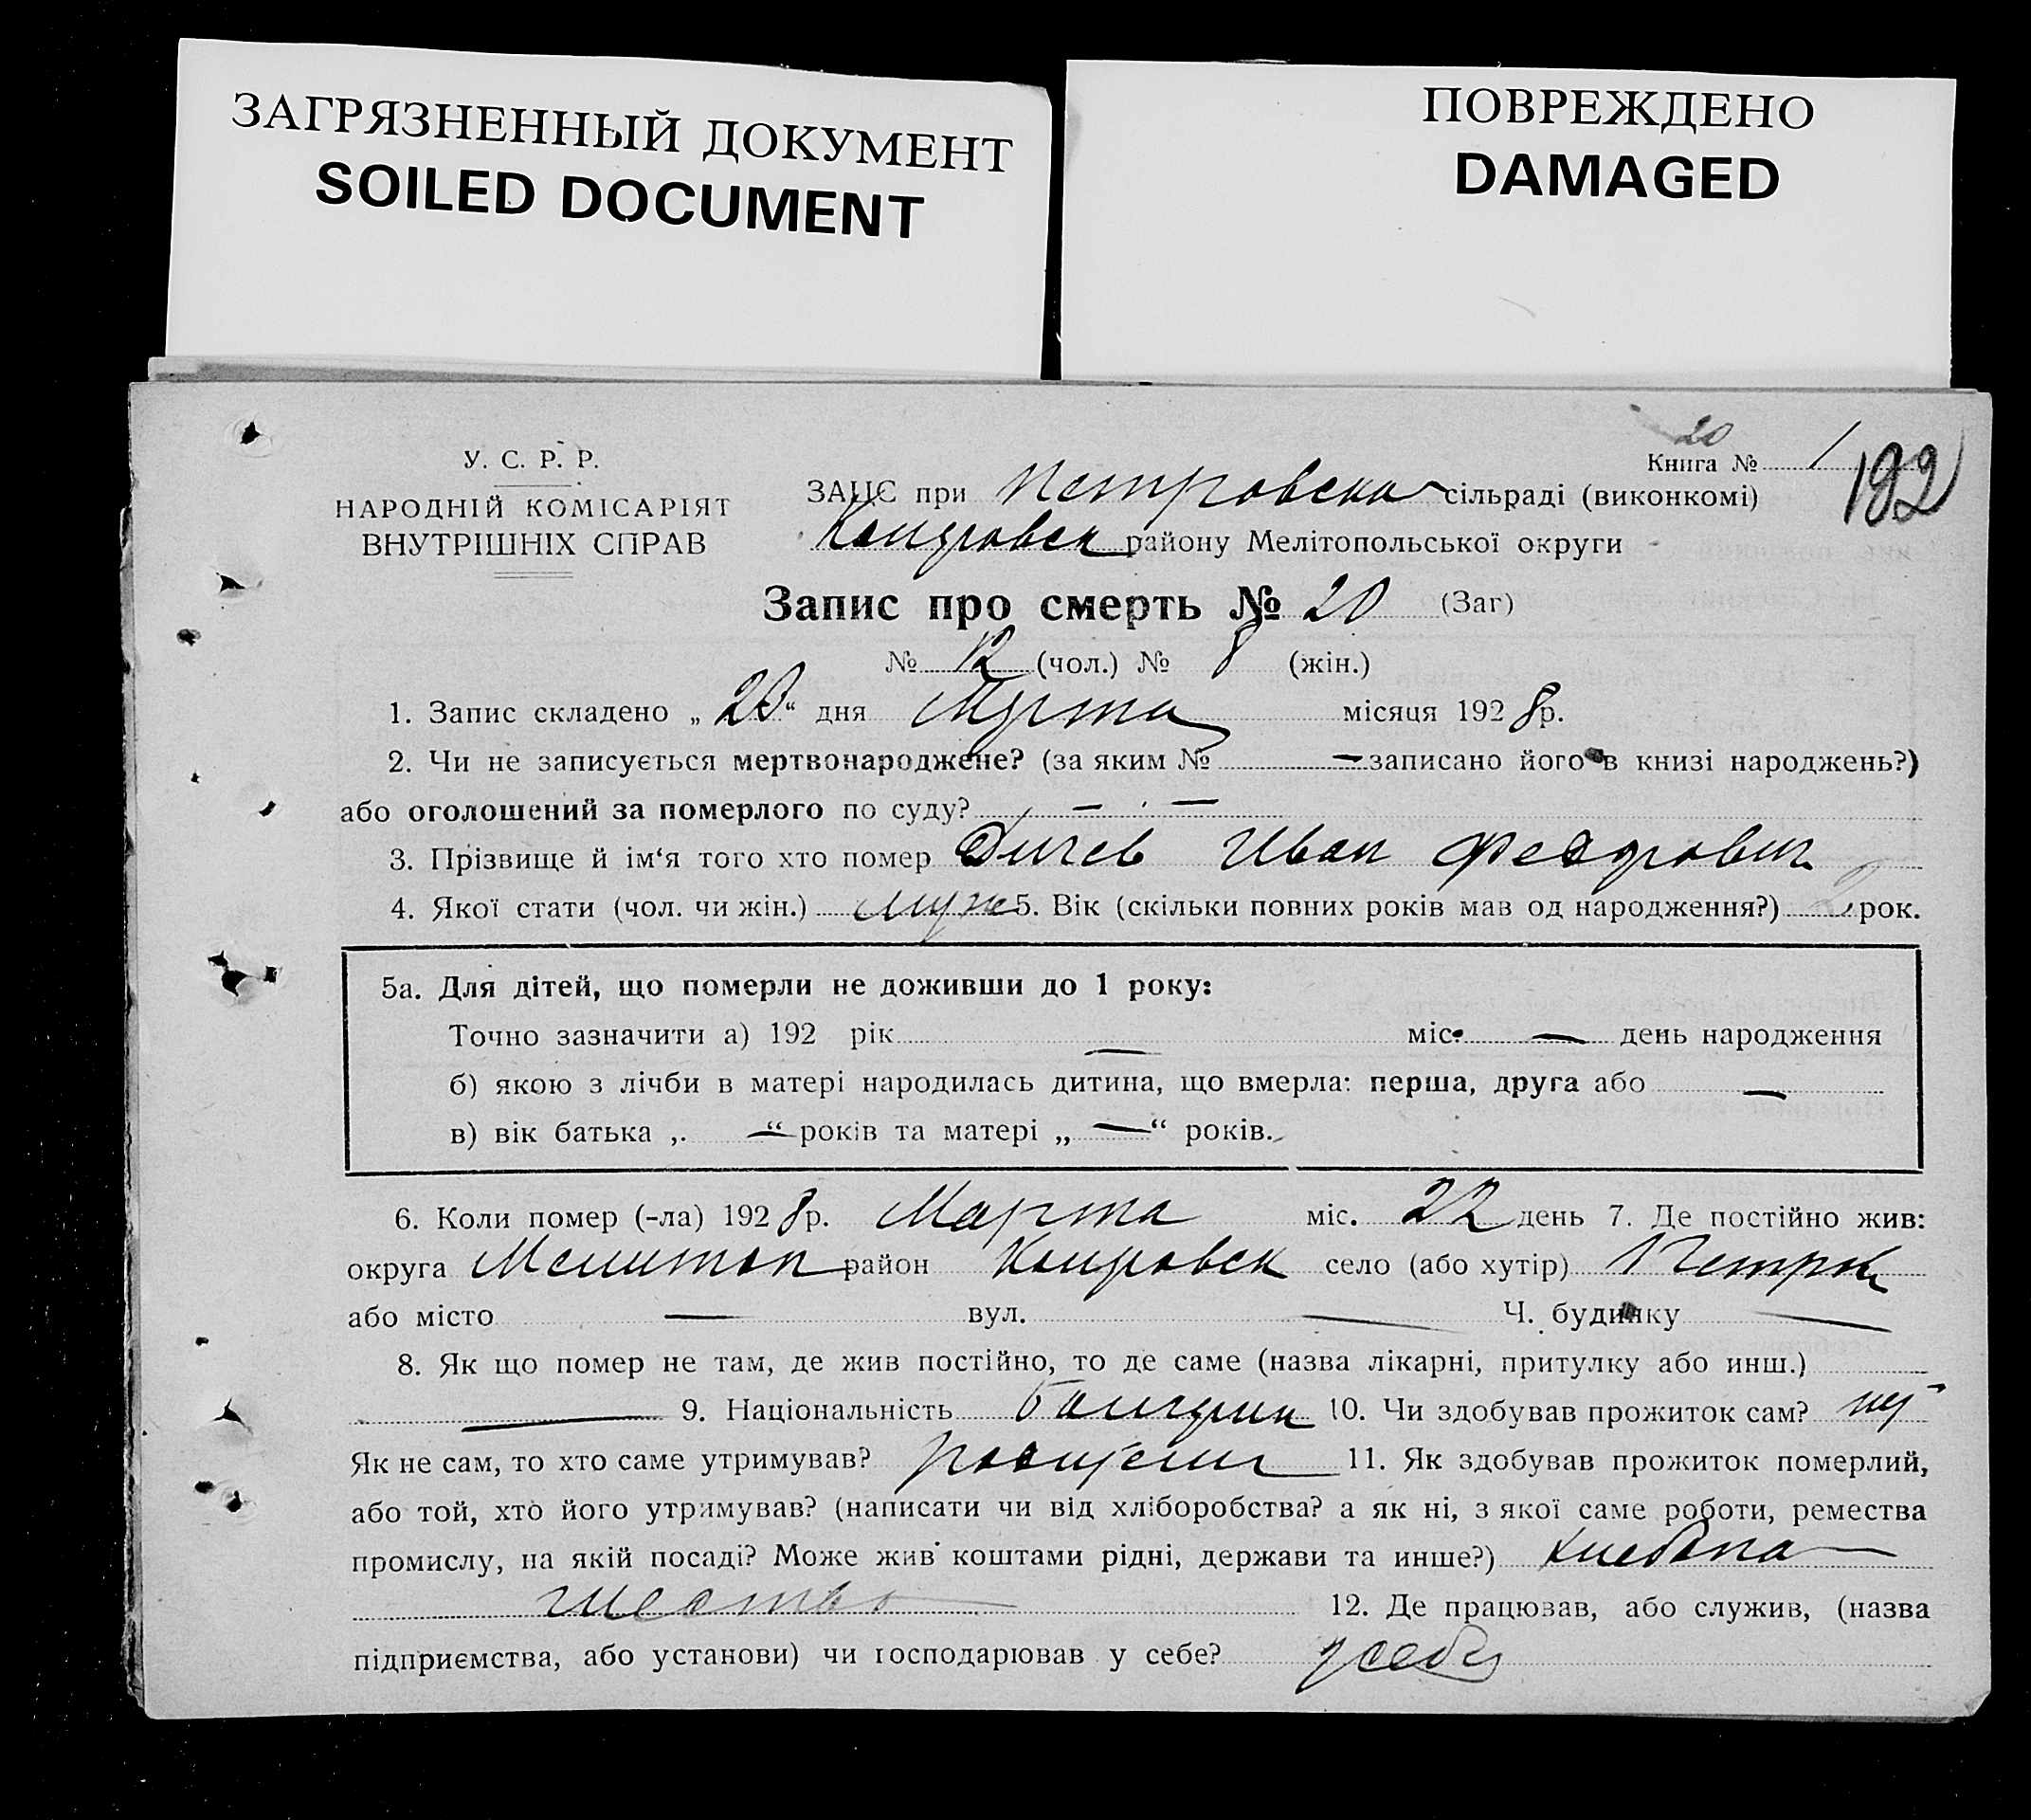 ЗАГРЯЗНЕННЫЙ ДОКУМЕНТ
SOILED DOCUMENT
ПОВРЕЖДЕНО
DAMAGED
20
У. С. Р. Р.
НАРОДНІЙ КОМІСАРІЯТ
ВНУТРІШНІХ СПРАВ
Книга № 1
192
ЗАГС при Петровска сільраді (виконкомі)
району Мелітопольської округи
Запис про смерть № 20 (Заг)
№ 12 (чол.) № 8 (жін.)
1. Запис складено „ “ дня Марта місяця 192 8 р.
2. Чи не записується мертвонароджене? (за яким № — записано його в книзі народжень?)
або оголошений за померлого по суду? — . —
3. Прізвище й ім‘я того хто помер Дичев Иван Феодрович
4. Якої стати (чол. чи жін.) муж 5. Вік (скільки повних років мав од народження?) 2 рок.
5а. Для дітей, що померли не доживши до 1 року:
Точно зазначити а) 192 рік — міс. — день народження
б) якою з лічби в матері народилась дитина, що вмерла: перша, друга або —
в) вік батька „ — “ років та матері „ — “ років.
6. Коли помер (-ла) 192 8 р. Марта міс. 22 день 7. Де постійно жив:
округа Мелитоп район село (або хутір) Петров
або місто — вул. — Ч. будинку —
8. Як що помер не там, де жив постійно, то де саме (назва лікарні, притулку або инш.)
— 9. Національність Болгарин 10. Чи здобував прожиток сам?
Як не сам, то хто саме утримував? 11. Як здобував прожиток померлий,
або той, хто його утримував? (написати чи від хліборобства? а як ні, з якої саме роботи, ремества
промислу, на якій посаді? Може жив коштами рідні, держави та инше?) хлебопа
шество 12. Де працював, або служив, (назва
підприємства, або установи) чи господарював у себе? у себя